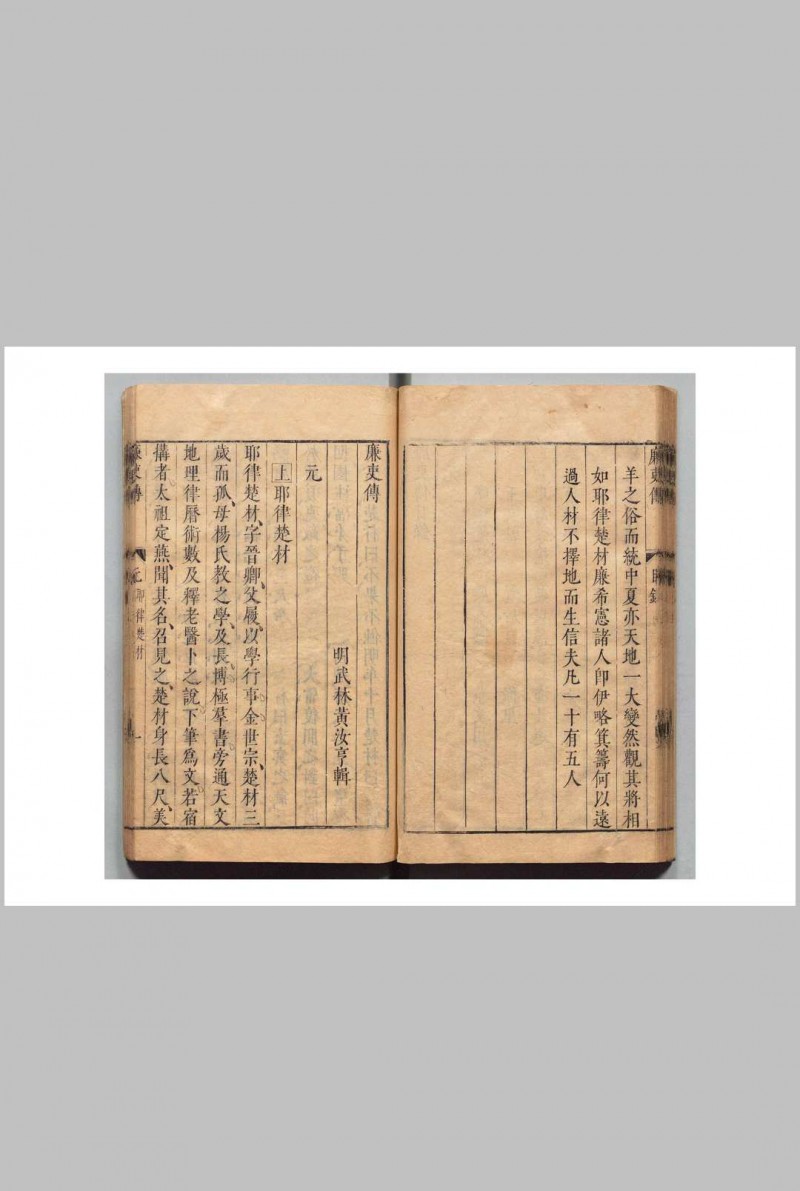 廉吏傳
目錄
羊之俗而統中夏亦天地一大變然觀其將相
如耶律楚材廉希憲諸人卽伊略箕籌何以遠
過人材不擇地而生信夫凡一十有五人
廉吏傳
明武林黃汝亨輯
元
上耶律楚材
耶律楚材、字晉卿、父履、以學行事金世宗、楚材三
歲而孤、母楊氏教之學、及長、博極羣書、旁通天文
地理律曆術數及釋老醫卜之說、下筆爲文、若宿
搆者、太祖定燕、聞其名、召見之、楚材身長八尺、美
廉吏傳
元耶律楚材
一